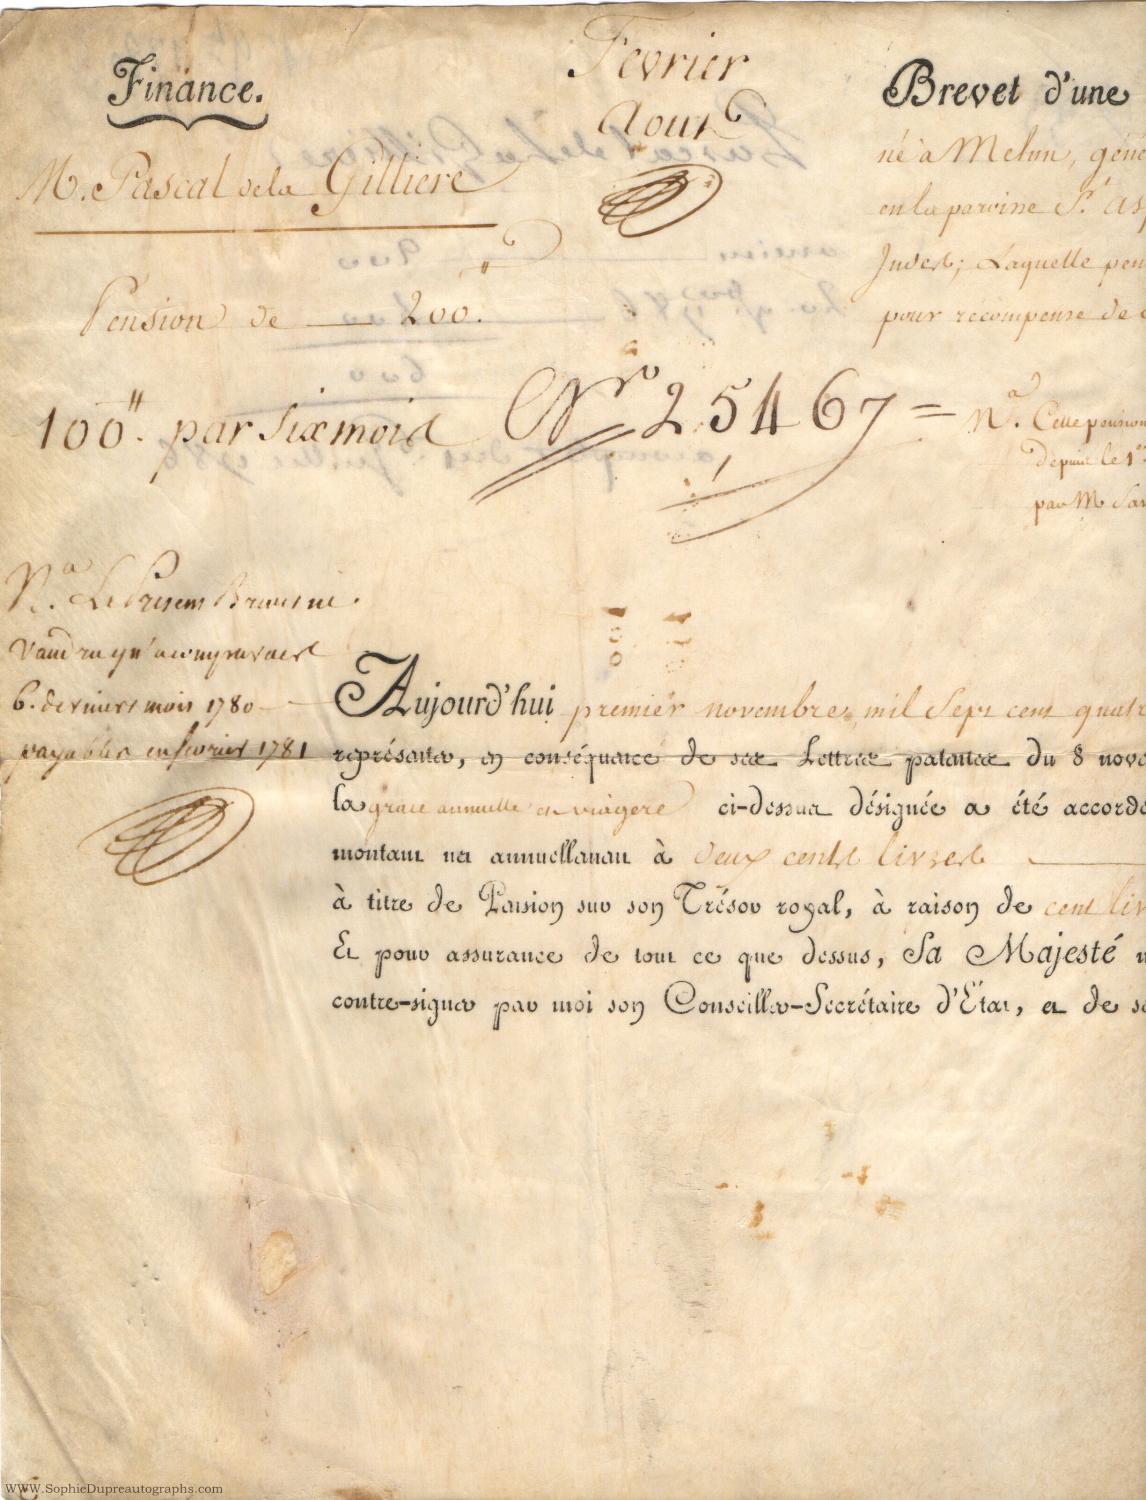 Finance.
Fevrier
Aoust
M. Pascal de la Gilliere
Pension de 200.
100" par Six mois
Nro 25467 =
Brevet d'une
né à Melun, géné
en la paroisse St. Asp
Judes; Laquelle pen
pour récompense de
Na. Cette pension
depuis le 1er
par M Sav
Na. Le Present Brevet ne
vaudra qu'a compter des
6. derniers mois 1780
payables en fevrier 1781
Aujourd'hui premier novembre mil Sept cent quatr
représenter, en conséquence de ses Lettres patentes du 8 nove
la grace annuelle et viagere ci-dessus désignée a été accordé
montant net annuellement à deux cents livres
à titre de Pension sur son Trésor royal, à raison de cent liv
Et pour assurance de tout ce que dessus, Sa Majesté
contre-signer par moi son Conseiller-Secrétaire d'Etat, et de s
WWW.SophieDupreautographs.com